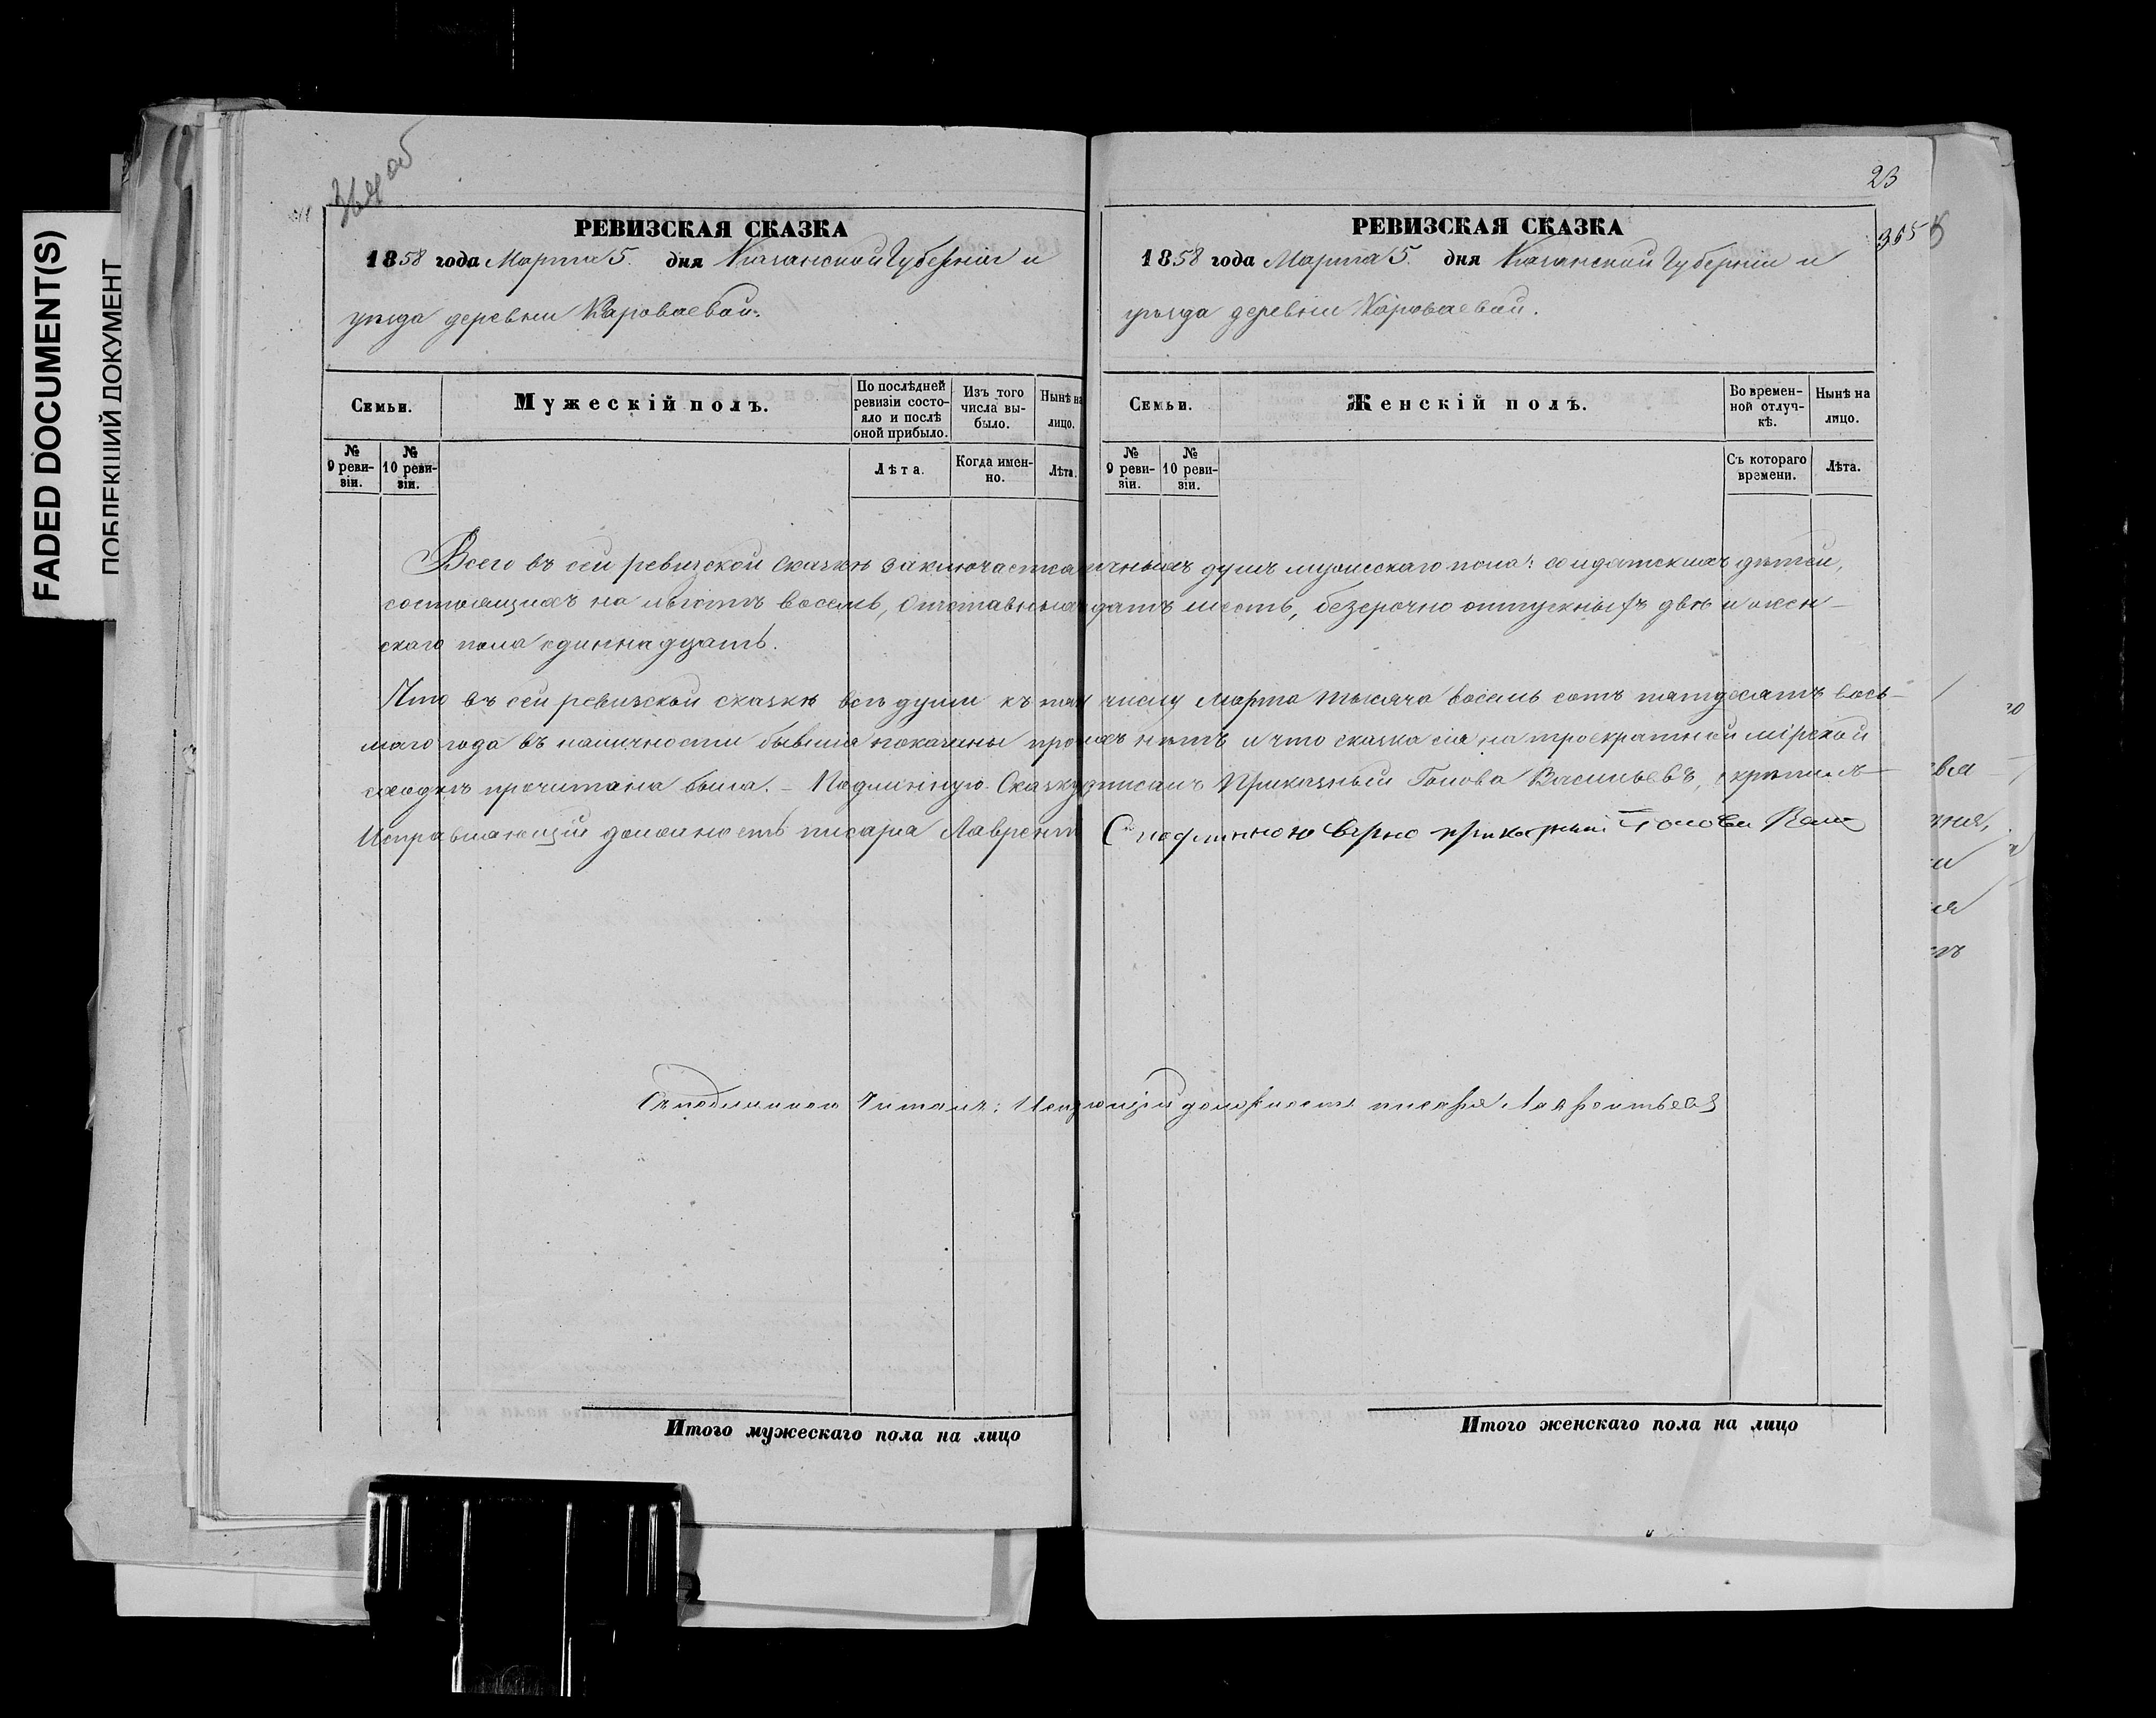 FADED DOCUMENT(S)
ПОБЛЕКШИЙ ДОКУМЕНТ
364 об
РЕВИЗСКАЯ СКАЗКА
1858 года Марта 5. дня Казанской Губерніи и
уѣзда деревни Караваевой.
Семьи.
Мужескій полъ.
По послѣдней ревизіи состояло и послѣ оной прибыло.
Изъ того числа выбыло.
Нынѣ на лицо.
№ 9 ревизіи.
№ 10 ревизіи.
Лѣта.
Когда именно.
Лѣта.
23
365
РЕВИЗСКАЯ СКАЗКА
1858 года Марта 5. дня Казанской Губерніи и
уѣзда деревни Караваевой.
Семьи.
Женскій полъ.
Во временной отлучкѣ.
Нынѣ на лицо.
№ 9 ревизіи.
№ 10 ревизіи.
Съ котораго времени.
Лѣта.
Всего въ сей ревизской сказкѣ заключается душъ мужескаго пола: солдатскихъ дѣтей,
состоящихъ на льготѣ восемь, Отставныхъ шесть, безсрочно отпускныхъ двѣ и жен-
скаго пола одиннадцать.
Что въ сей ревизской сказкѣ всѣ души къ числу Марта тысяча восемь сотъ пятдесятъ вось-
маго года въ наличности бывшія показаны нѣтъ и что сказка сія на троекратной мірской
сходкѣ прочитана была. - Подлинную Сказку Приказный Голова Васильевъ, скрѣпилъ
Исправляющій должность писаря Лаврент
Съ подлинною вѣрно приказный Голова
Съ подлинною Читалъ: должность писаря Лаврентьевъ
Итого мужескаго пола на лицо
Итого женскаго пола на лицо